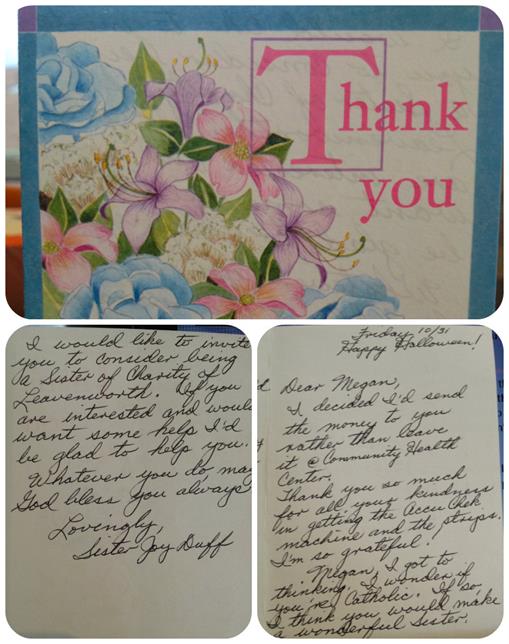 Thank
you
I would like to invite
you to consider being
a Sister of Charity of
Leavenworth. If you
are interested and would
want some help I'd
be glad to help you.
Whatever you do may
God bless you always
Lovingly,
Sister Joy Duff
Friday 10/31
Happy Halloween!
Dear Megan,
I decided I'd send
the money to you
rather than leave
it @ Community Health
Center.
Thank you so much
for all your kindness
in getting the Accu Chek
machine and the strips.
I'm so grateful!
Megan, I got to
thinking. I wonder if
you're Catholic. If so,
I think you would make
a wonderful Sister.